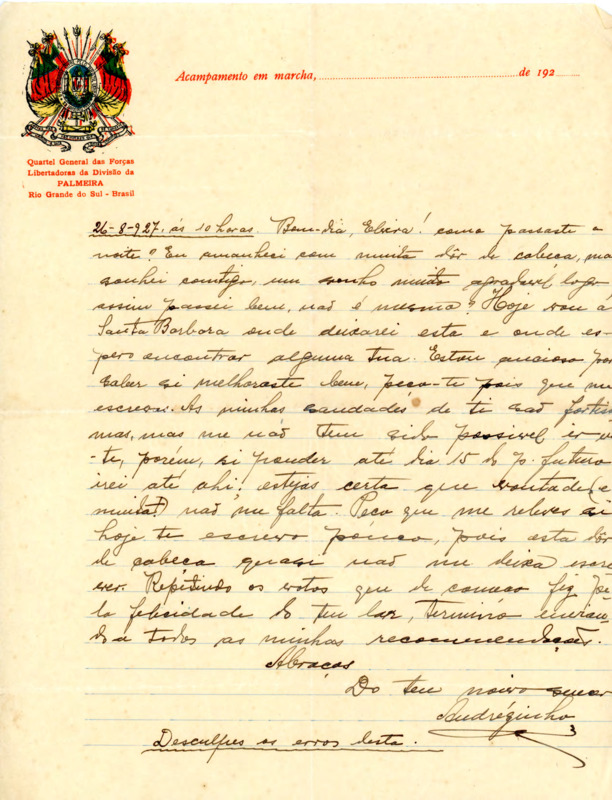 Acampamento em marcha, de 192
Quartel General das Forças
Libertadoras da Divisão da
PALMEIRA
Rio Grande do Sul - Brasil
26-8-927, ás 10 horas. Bom-dia, Elvira! como passaste a
noite? Eu amanheci com muita dôr de cabeça, mas
sonhei comtigo, um sonho muito agradavel logo
assim passei bem, não é mesmo? Hoje vou a
Santa Barbara onde deixarei esta e onde es-
pero encontrar alguma tua. Estou ancioso por
saber si melhoraste bem, peço-te pois que me
escreva. As minhas saudades de ti são fortissi
mas, mas me não tem sido possivel ir v
-te, porém, si pouder até dia 15 do p. futuro
irei até ahi; estejas certa que vontade (e
muita) não me falta. Peço que me releves si
hoje te escrevo pouco, pois esta dôr
de cabeça quasi não me deixa escre
ver. Repitindo os votos que de começo fiz pe-
la felicidade do teu lar, termino envian
do a todos as minhas recommendações.
Abraços
Do teu noivo
Andréginho
Desculpes os erros desta.